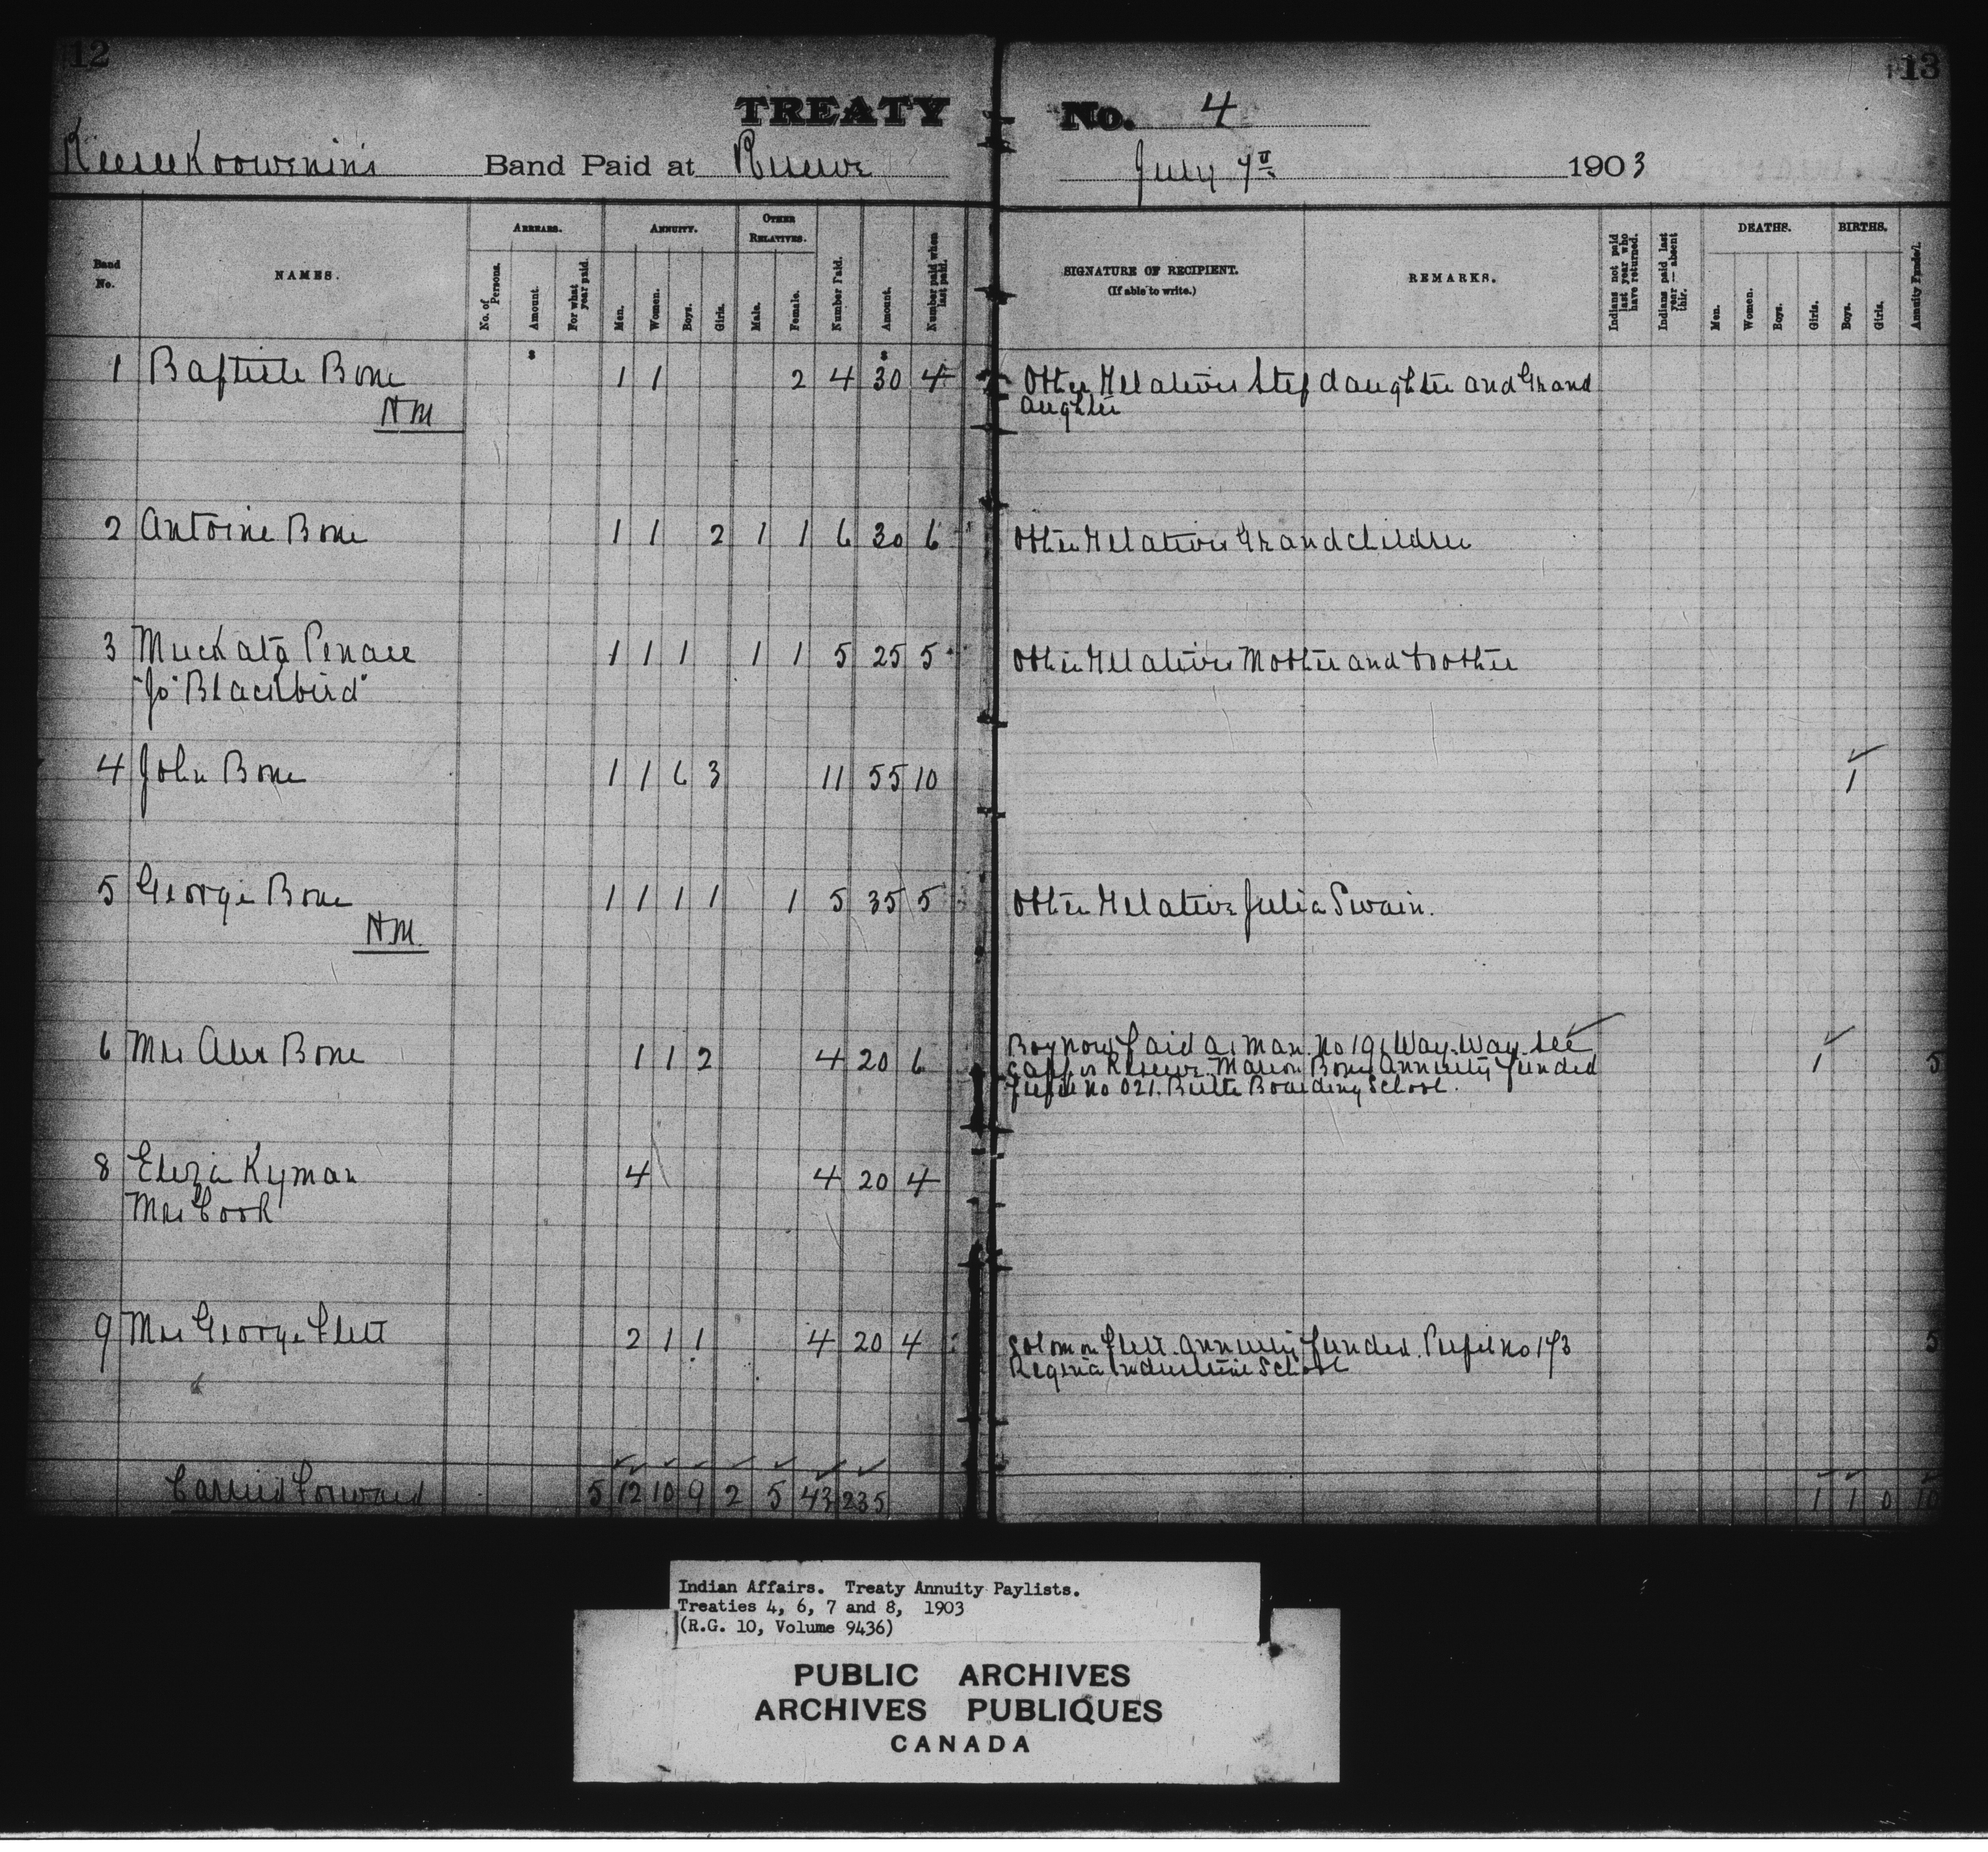 12
13
TREATY No. 4
Keeseekoowenin's Band Paid at Reserve July 7th 1903
Band No.
NAMES.
ARREARS.
No. of Persons.
Amount.
For what year paid.
ANNUITY.
Men.
Women.
Boys.
Girls.
OTHER RELATIVES.
Male.
Female.
Number Paid.
Amount.
Number paid when last paid.
SIGNATURE OF RECIPIENT.
(If able to write.)
REMARKS.
Indians not paid last year who have returned.
Indians paid last year — absent this.
DEATHS.
Men.
Women.
Boys.
Girls.
BIRTHS.
Boys.
Girls.
$ $
1 Baptiste Bone 1 1 2 4 30 4 Other Relatives Step daughter and Grand
HM aughter
2 Antoine Bone 1 1 2 1 1 6 30 6 Other Relatives Grandchildren
3 Muckata Penace 1 1 1 1 1 5 25 5 Other Relatives Mother and brother
"Jo" Blackbird"
4 John Bone 1 1 6 3 11 55 10 1
5 George Bone 1 1 1 1 1 5 35 5 Other Relative Julia Swain.
HM.
6 Mrs Alex Bone 1 1 2 4 20 6 Boy now paid as man. No 191 Way Way See
Cappos Reserve. Bone Annuity funded 1 5
Pupil no 021. Birtle Boarding School.
8 Eliza Kyman 4 4 20 4
Mrs Cook
9 Mrs George Flett 2 1 1 4 20 4 Solomon Flett. Annuity funded. Pupil no 173 5
Regina Industrial School
Carried Forward 5 12 10 9 2 5 43 235 1 1 0 10
Indian Affairs. Treaty Annuity Paylists.
Treaties 4, 6, 7 and 8, 1903
(R.G. 10, Volume 9436)
PUBLIC ARCHIVES
ARCHIVES PUBLIQUES
CANADA